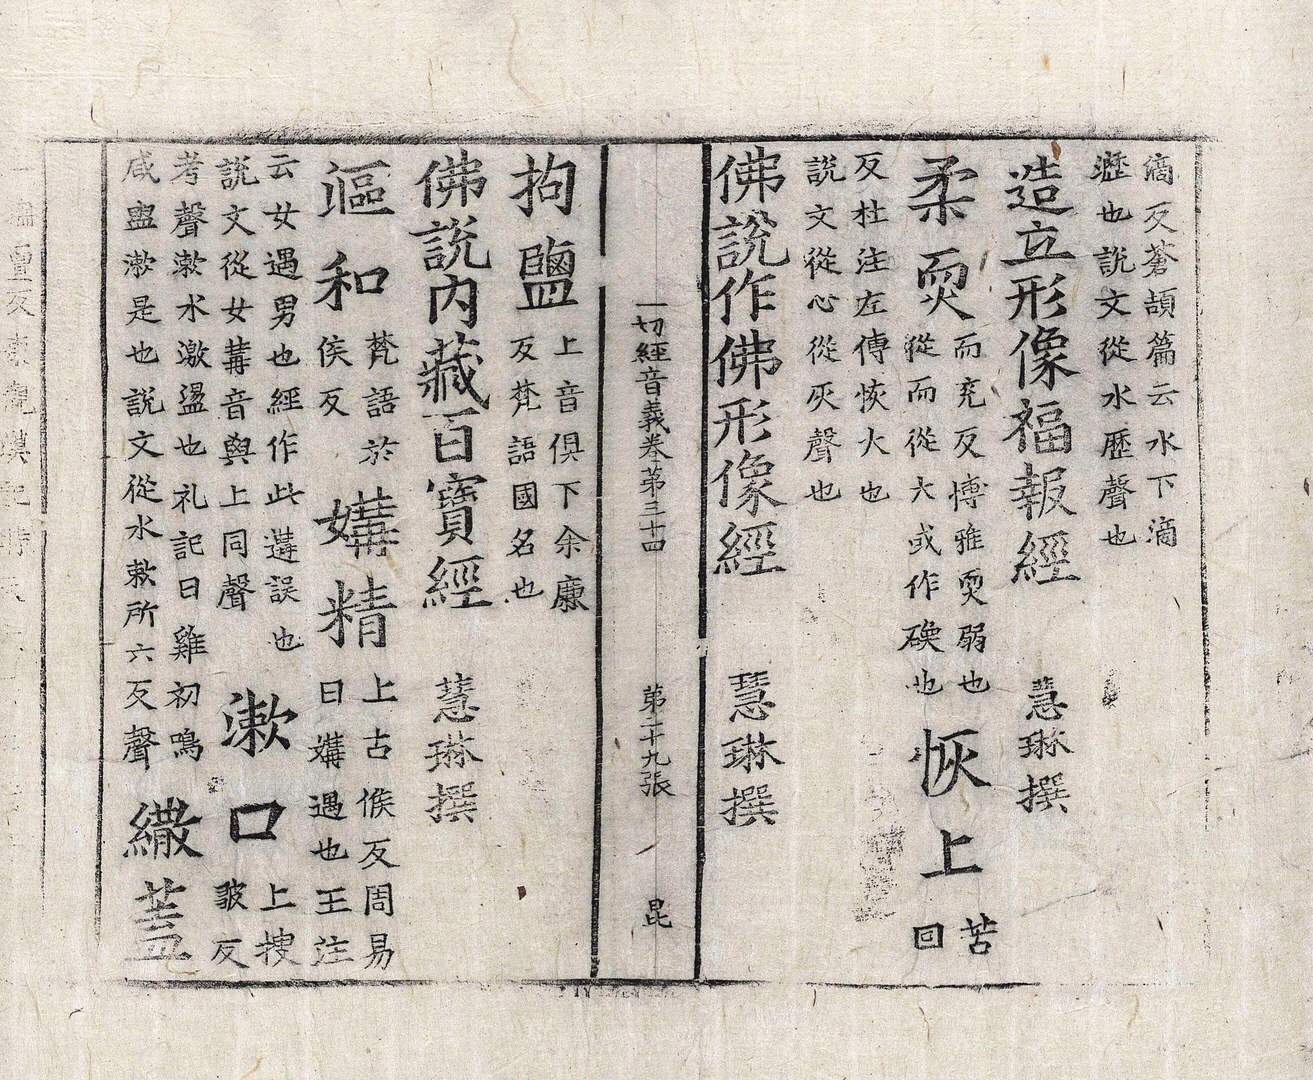 滴反蒼頡篇云水下滴
瀝也說文從水歷聲也
造立形像福報經 慧琳撰
柔耎 而充反博雅耎弱也
從而從大或作碝也 恢上 苦
回
反杜注左傳恢大也
說文從心從灰聲也
佛說作佛形像經 慧琳撰
一切經音義卷第三十四 第二十九張 昆
拘鹽 上音俱下余廉
反梵語國名也
佛說內藏百寶經 慧琳撰
漚和 梵語於
侯反 媾精 上古候反周易
曰媾遇也王注
云女遇男也經作此遘誤也
說文從女冓音與上同聲 漱口 上搜
皺反
考聲漱水激盪也礼記曰雞初鳴
咸盥漱是也說文從水欶所六反聲 繖蓋